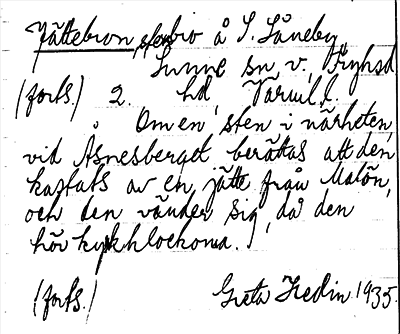 Jättebron, stenbro å S. Såneby
Sunne sn v. Fryksd.
(forts.) 2. hd, Värml. l.
Om en sten i närheten
vid Åsnesberget berättas att den
kastats av en jätte från Matön,
och den vänder sig, då den
hör kyrkklockorna.
(forts.) Greta Hedin 1935.